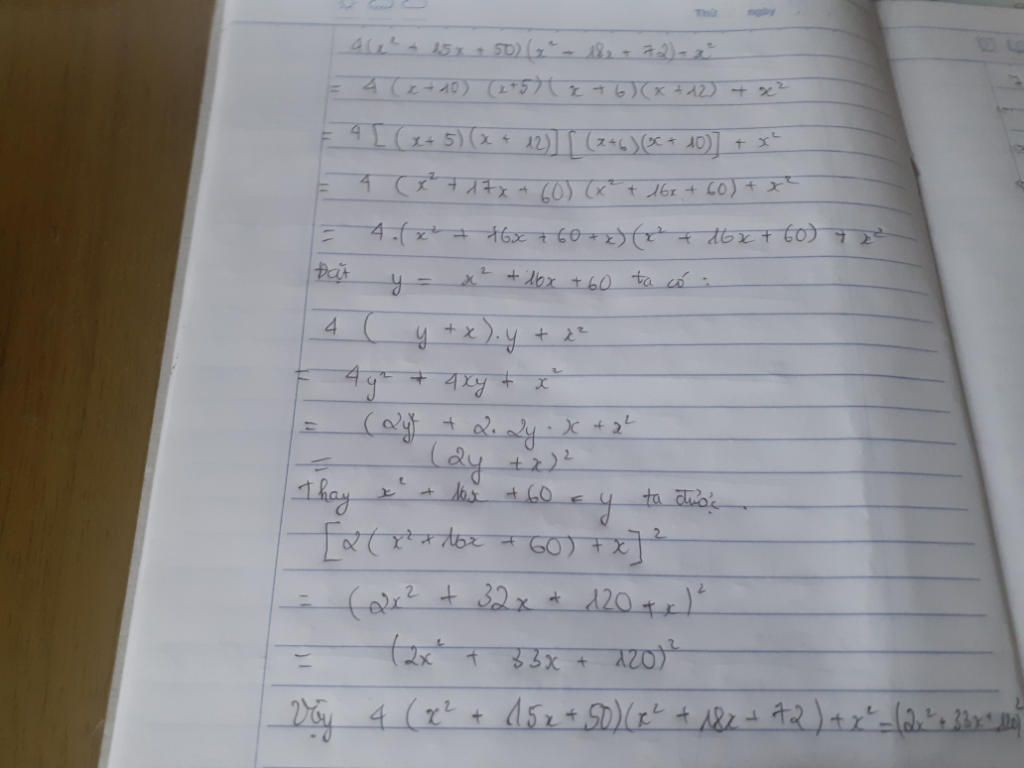 Thứ ngày
4(x² + 15x + 50)(x² + 18x + 72) + x²
= 4 (x + 10) (x+5)(x + 6)(x + 12) + x²
= 4 [(x + 5)(x + 12)] [(x+6)(x + 10)] + x²
= 4 (x² + 17x + 60) (x² + 16x + 60) + x²
= 4.(x² + 16x + 60 + x)(x² + 16x + 60) + x²
Đặt y = x² + 16x + 60 ta có :
4 ( y + x).y + x²
= 4y² + 4xy + x²
= (2y)² + 2. 2y . x + x²
= (2y + x)²
Thay x² + 16x + 60 = y ta được .
[2(x² + 16x + 60) + x]²
= (2x² + 32x + 120 + x)²
= (2x² + 33x + 120)²
Vậy 4 (x² + 15x + 50)(x² + 18x + 72) + x² = (2x² + 33x + 120)²